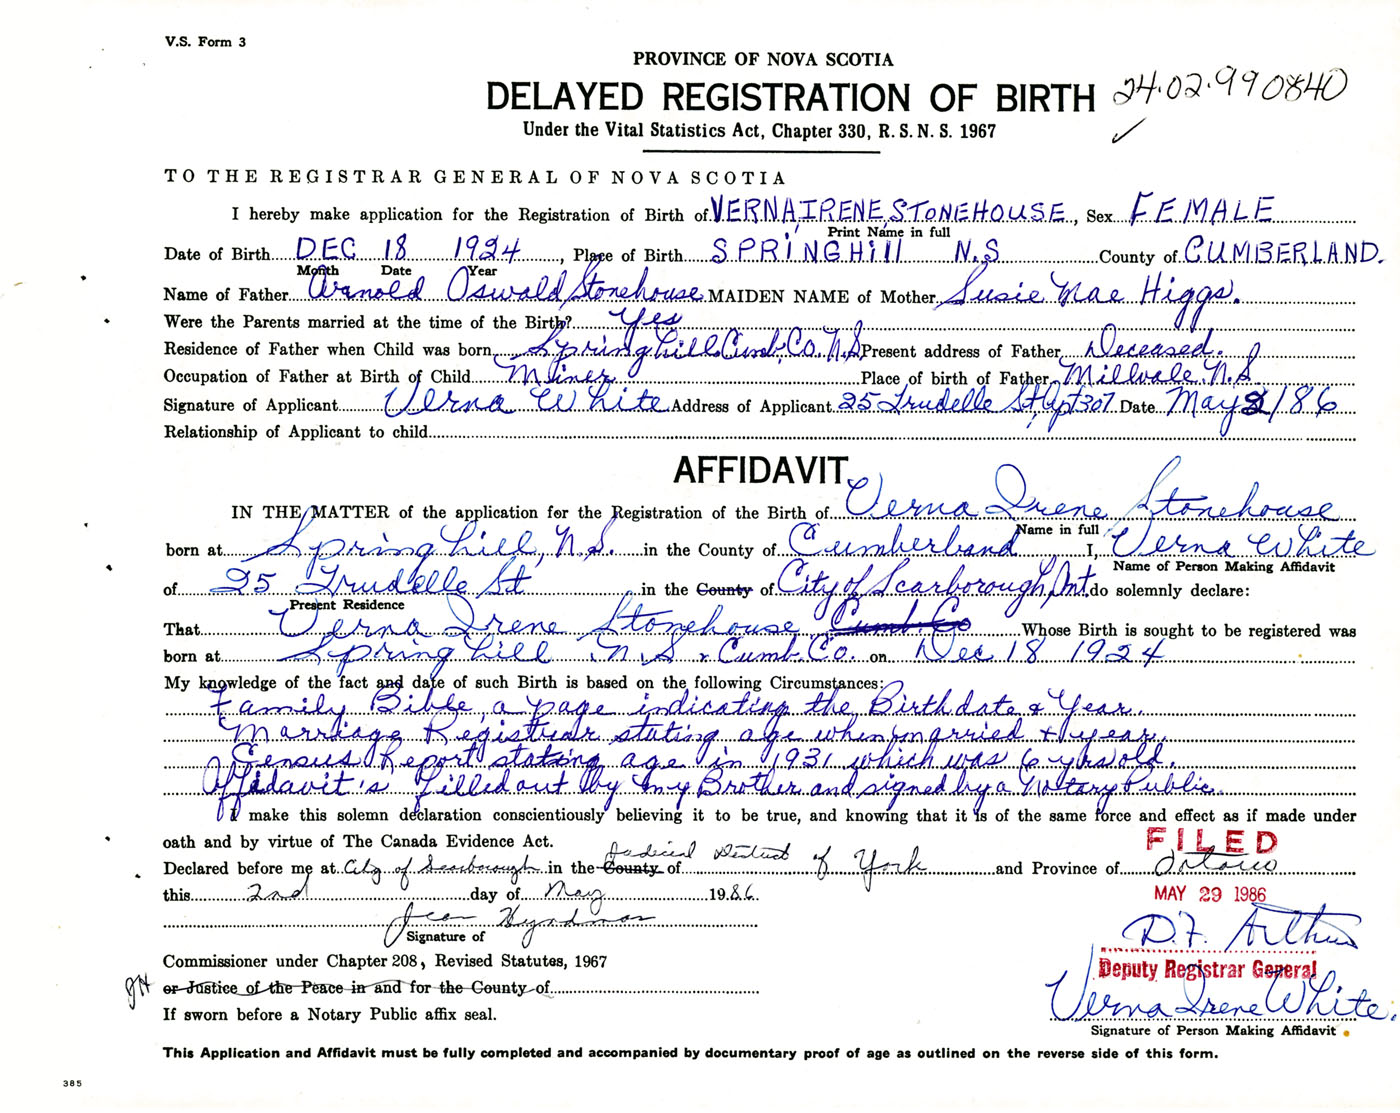 V.S. Form 3
PROVINCE OF NOVA SCOTIA
DELAYED REGISTRATION OF BIRTH 24.02.990840
Under the Vital Statistics Act, Chapter 330, R. S. N. S. 1967
TO THE REGISTRAR GENERAL OF NOVA SCOTIA
I hereby make application for the Registration of Birth of VERNA, IRENE, STONEHOUSE, Sex FEMALE
Print Name in full
Date of Birth DEC 18 1924, Place of Birth SPRINGHill N.S County of CUMBERLAND.
Month Date Year
Name of Father Arnold Oswald Stonehouse MAIDEN NAME of Mother Susie Mae Higgs.
Were the Parents married at the time of the Birth? Yes
Residence of Father when Child was born Springhill Cumb. Co. N.S Present address of Father Deceased.
Occupation of Father at Birth of Child Miner Place of birth of Father Millvale N.S
Signature of Applicant Verna White Address of Applicant 25 Trudelle St, Apt 307 Date May 2/86
Relationship of Applicant to child
AFFIDAVIT
IN THE MATTER of the application for the Registration of the Birth of Verna Irene Stonehouse
Name in full
born at Springhill, N.S. in the County of Cumberland I, Verna White
Name of Person Making Affidavit
of 25 Trudelle St in the County of City of Scarborough, Ont. do solemnly declare:
Present Residence
That Verna Irene Stonehouse Cumb. Co Whose Birth is sought to be registered was
born at Springhill N.S. Cumb. Co. on Dec 18 1924
My knowledge of the fact and date of such Birth is based on the following Circumstances:
Family Bible, a page indicating the Birthdate & Year.
Marriage Registrar stating age when married & year.
Census Report stating age in 1931 which was 6 yrs old.
Affidavit's filled out by my Brother and signed by a Notary Public.
I make this solemn declaration conscientiously believing it to be true, and knowing that it is of the same force and effect as if made under
oath and by virtue of The Canada Evidence Act.
FILED
Declared before me at City of Scarborough in the County of Judicial District of York and Province of Ontario
this 2nd day of May 1986.
MAY 29 1986
Jean Hyndman
Signature of
D.F. Arthur
Commissioner under Chapter 208, Revised Statutes, 1967
Deputy Registrar General
JH or Justice of the Peace in and for the County of
Verna Irene White.
If sworn before a Notary Public affix seal.
Signature of Person Making Affidavit
This Application and Affidavit must be fully completed and accompanied by documentary proof of age as outlined on the reverse side of this form.
385